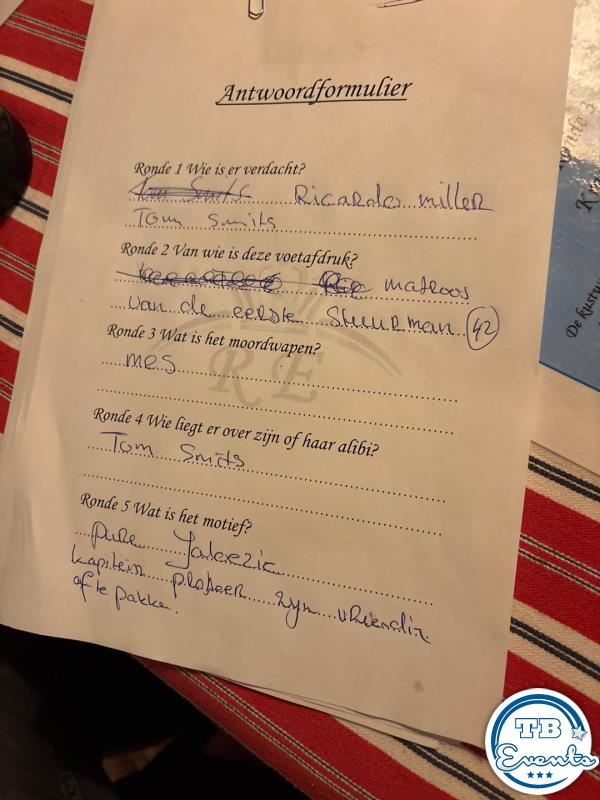 Antwoordformulier
Ronde 1 Wie is er verdacht?
Tom Smits Ricardo miller
Tom Smits
Ronde 2 Van wie is deze voetafdruk?
matroos
van de eerste Stuurman 42
Ronde 3 Wat is het moordwapen?
mes
RE
Ronde 4 Wie liegt er over zijn of haar alibi?
Tom Smits
Ronde 5 Wat is het motief?
pure
kapitein zijn vriendin
af te pakken.
De kustw
TB
Events